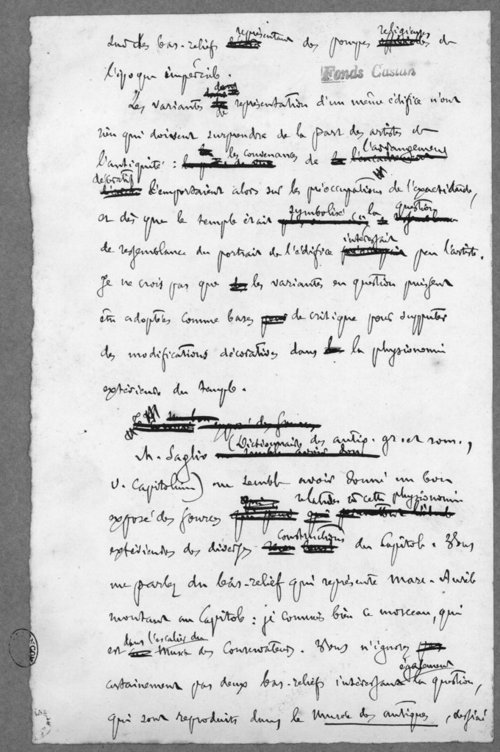 sur des bas-reliefs représentant des pompes religieuses de
l'époque impériale.
Fonds Custan
Les variantes dans la représentation d'un même édifice n'ont
rien qui doivent surprendre de la part des artistes de
l'antiquité : les convenances de l'arrangement
décoratif l'emportaient alors sur les préoccupations de l'exactitude,
et dès que le temple était symbolisé, la question
de ressemblance du portrait de l'édifice intéressait peu l'artiste.
Je ne crois pas que les variantes en question puissent
être adoptées comme bases de critique pour supputer
des modifications décoratives dans la physionomie
extérieure du temple.
M. Saglio (Dictionnaire des antiq. gr. et rom.,
v. Capitolium) me semble avoir donné un bon
exposé des sources relatives à cette physionomie
extérieure des diverses constructions du Capitole. Vous
me parlez du bas-relief qui représente Marc-Aurèle
montant au Capitole : je connais bien ce morceau, qui
est dans l'escalier du Musée des Conservateurs. Vous n'ignorez
certainement pas deux bas-reliefs intéressant également la question,
qui sont reproduits dans le Musée des antiques, dessiné